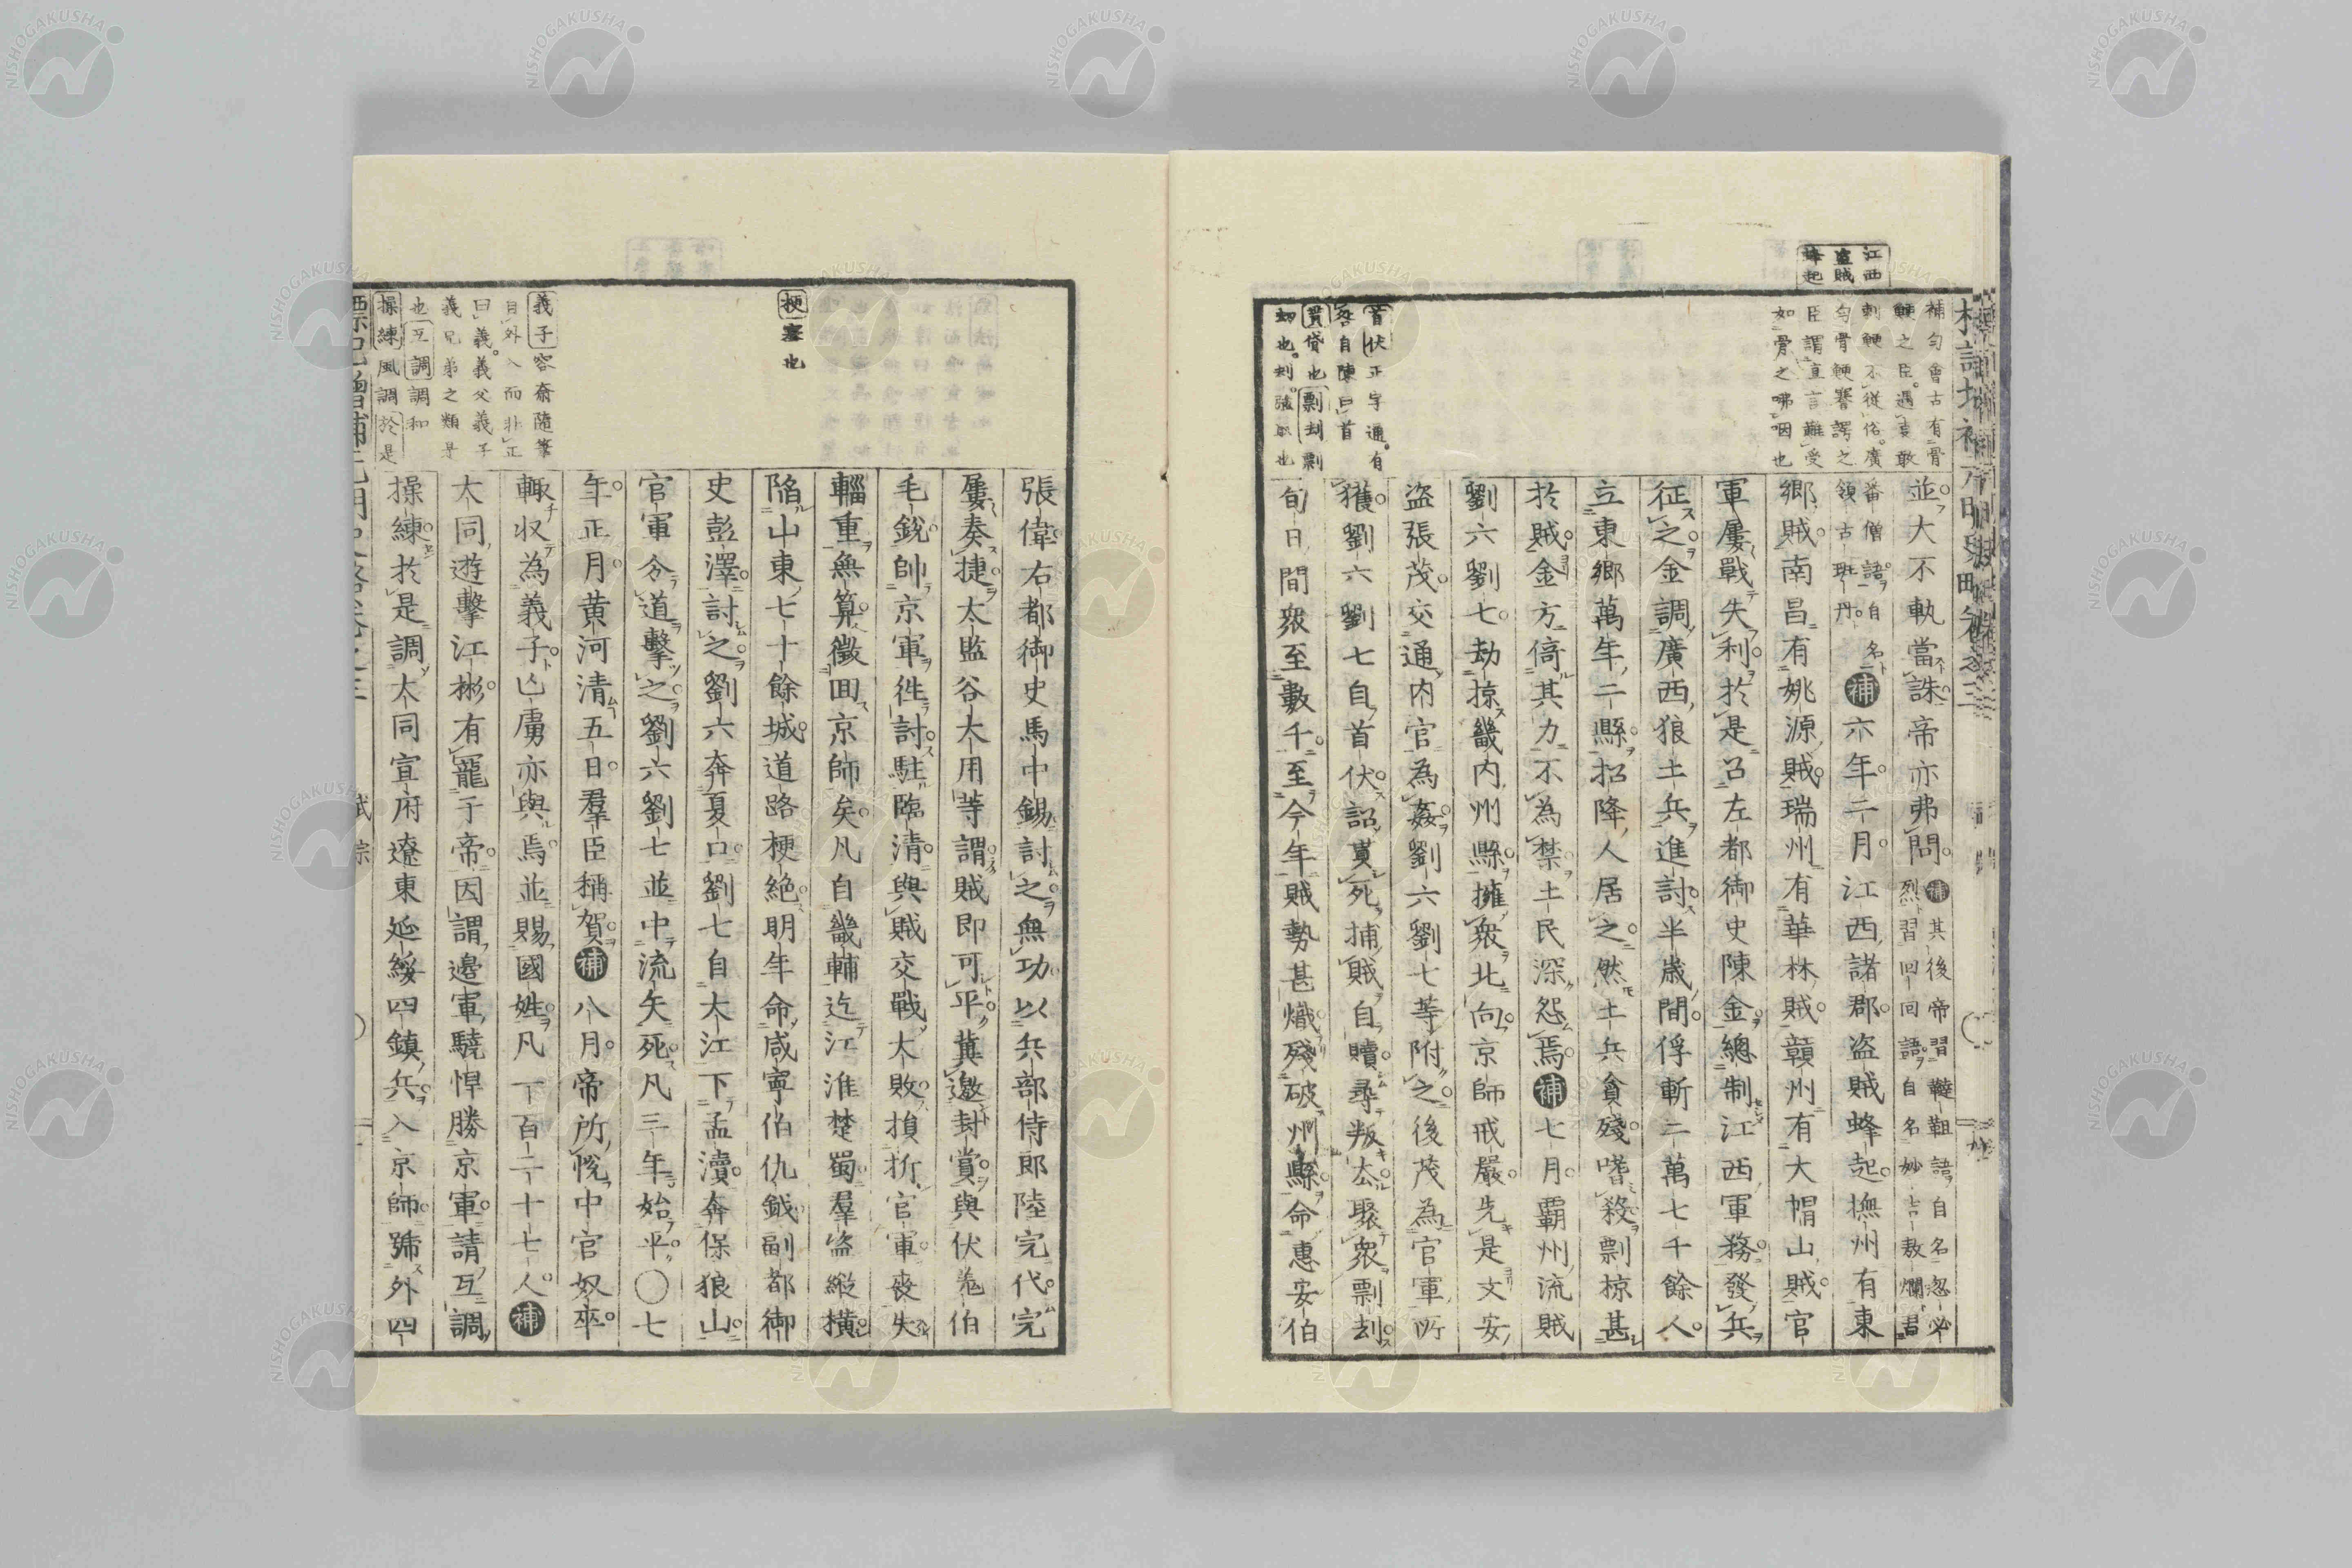 江西
盗賊
蜂起
補勾會古有骨
鯁之臣。遇事敢
刺鯁不從俗。廣
勾骨鯁謇諤之
臣謂直言難受
如骨之咈咽也
首伏正字通。有
咎自陳曰首
貰貸也剽刦剽
刼也。刦。強取也
並大不軌當誅帝亦弗問。補其後帝習韃靼語自名忽必
烈習回回語自名妙吉敖爛習
番僧語自名
領古班丹。補六年二月江西諸郡盗賊蜂起撫州有東
鄉賊南昌有姚源賊瑞州有華林賊贛州有大帽山賊官
軍屢戰失利於是召左都御史陳金總制江西軍務發兵
征之金調廣西狼土兵進討半歳間俘斬二萬七千餘人
立東鄉萬年二縣招降人居之然土兵貪殘嗜殺剽掠甚
於賊金方倚其力不為禁土民深怨焉補七月覇州流賊
劉六劉七劫掠畿内州縣擁衆北向京師戒嚴先是文安
盗張茂交通内官為姦劉六劉七等附之後茂為官軍所
獲劉六劉七自首伏詔貰死捕賊自贖尋叛去聚衆剽刦
旬日間衆至數千至今年賊勢甚熾殘破州縣命惠安伯
梗塞也
義子容齋隨筆
自外入而非正
曰義。義父義子
義兄弟之類是
也互調調和
操練風調於是
張偉右都御史馬中錫討之無功以兵部侍郎陸完代完
屢奏捷太監谷大用等謂賊即可平冀邀封賞與伏羌伯
毛鋭帥京軍徃討駐臨清與賊交戰大敗損折官軍喪失
輜重無算徵回京師矣凡自畿輔迄江淮楚蜀羣盗縱横
陥山東七十餘城道路梗絶明年命咸寧伯仇鉞副都御
史彭澤討之劉六奔夏口劉七自大江下孟瀆奔保狼山
官軍分道擊之劉六劉七並中流矢死凡三年始平〇七
年正月黄河清五日羣臣稱賀補八月帝所悅中官奴卒
輙収為義子亾虜亦與焉並賜國姓凡一百二十七人補
大同遊擊江彬有寵于帝因謂邊軍驍悍勝京軍請互調
操練於是調大同宣府遼東延綏四鎮兵入京師號外四